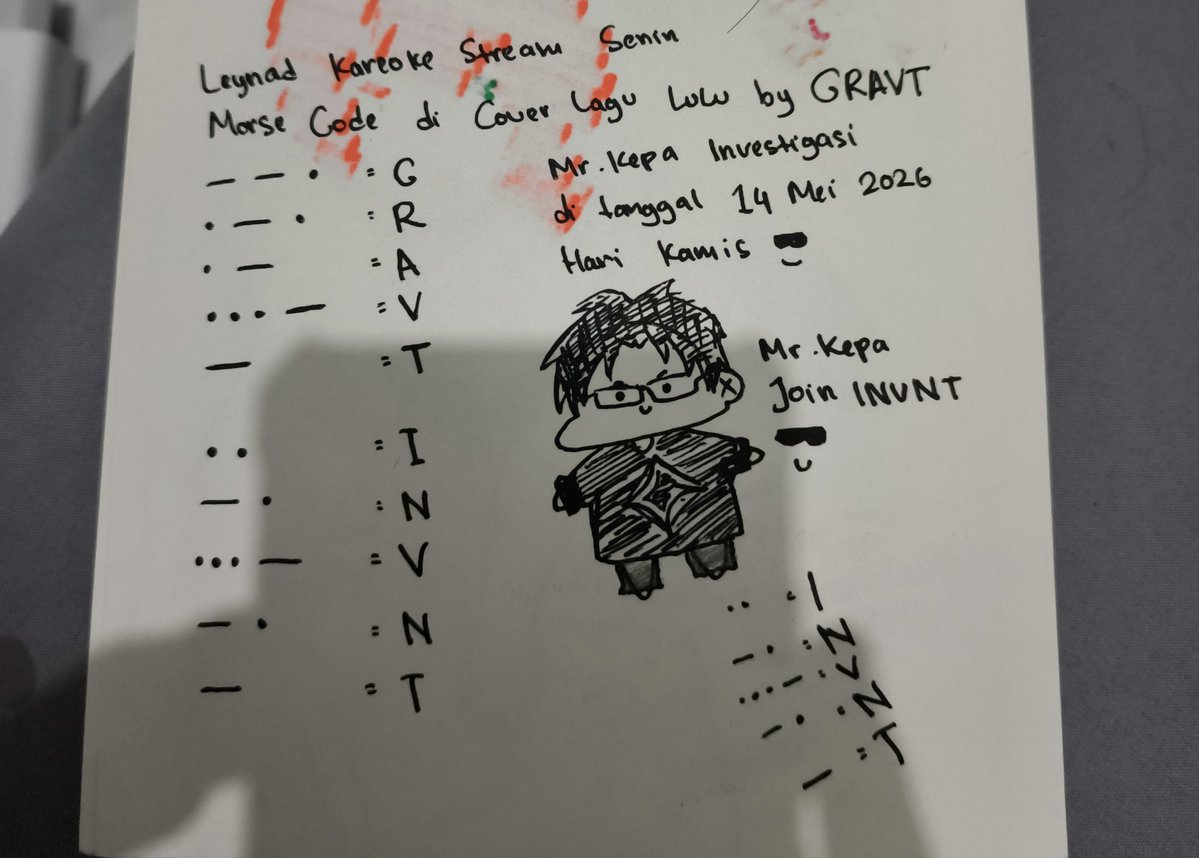 Leynad Kareoke Stream Senin
Morse Code di Cover Lagu Lulu by GRAVT
— — • = G
• — • = R
• — = A
• • • — = V
— = T
• • = I
— • = N
• • • — = V
— • = N
— = T
Mr. Kepa Investigasi
di tanggal 14 Mei 2026
Hari Kamis
Mr. Kepa
Join INVNT
• • = I
— • = N
• • • — = V
— • = N
— = T